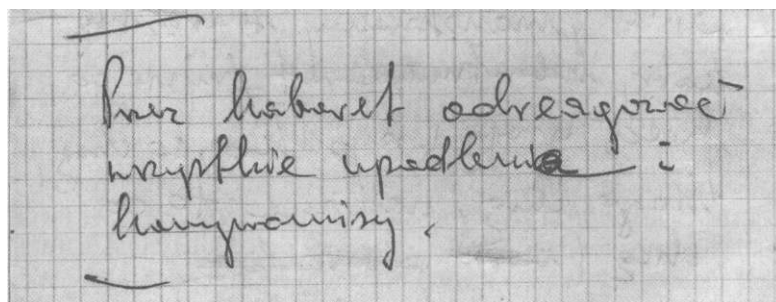 Przez kabaret odreagować
wszystkie upodlenia i
kompromisy.